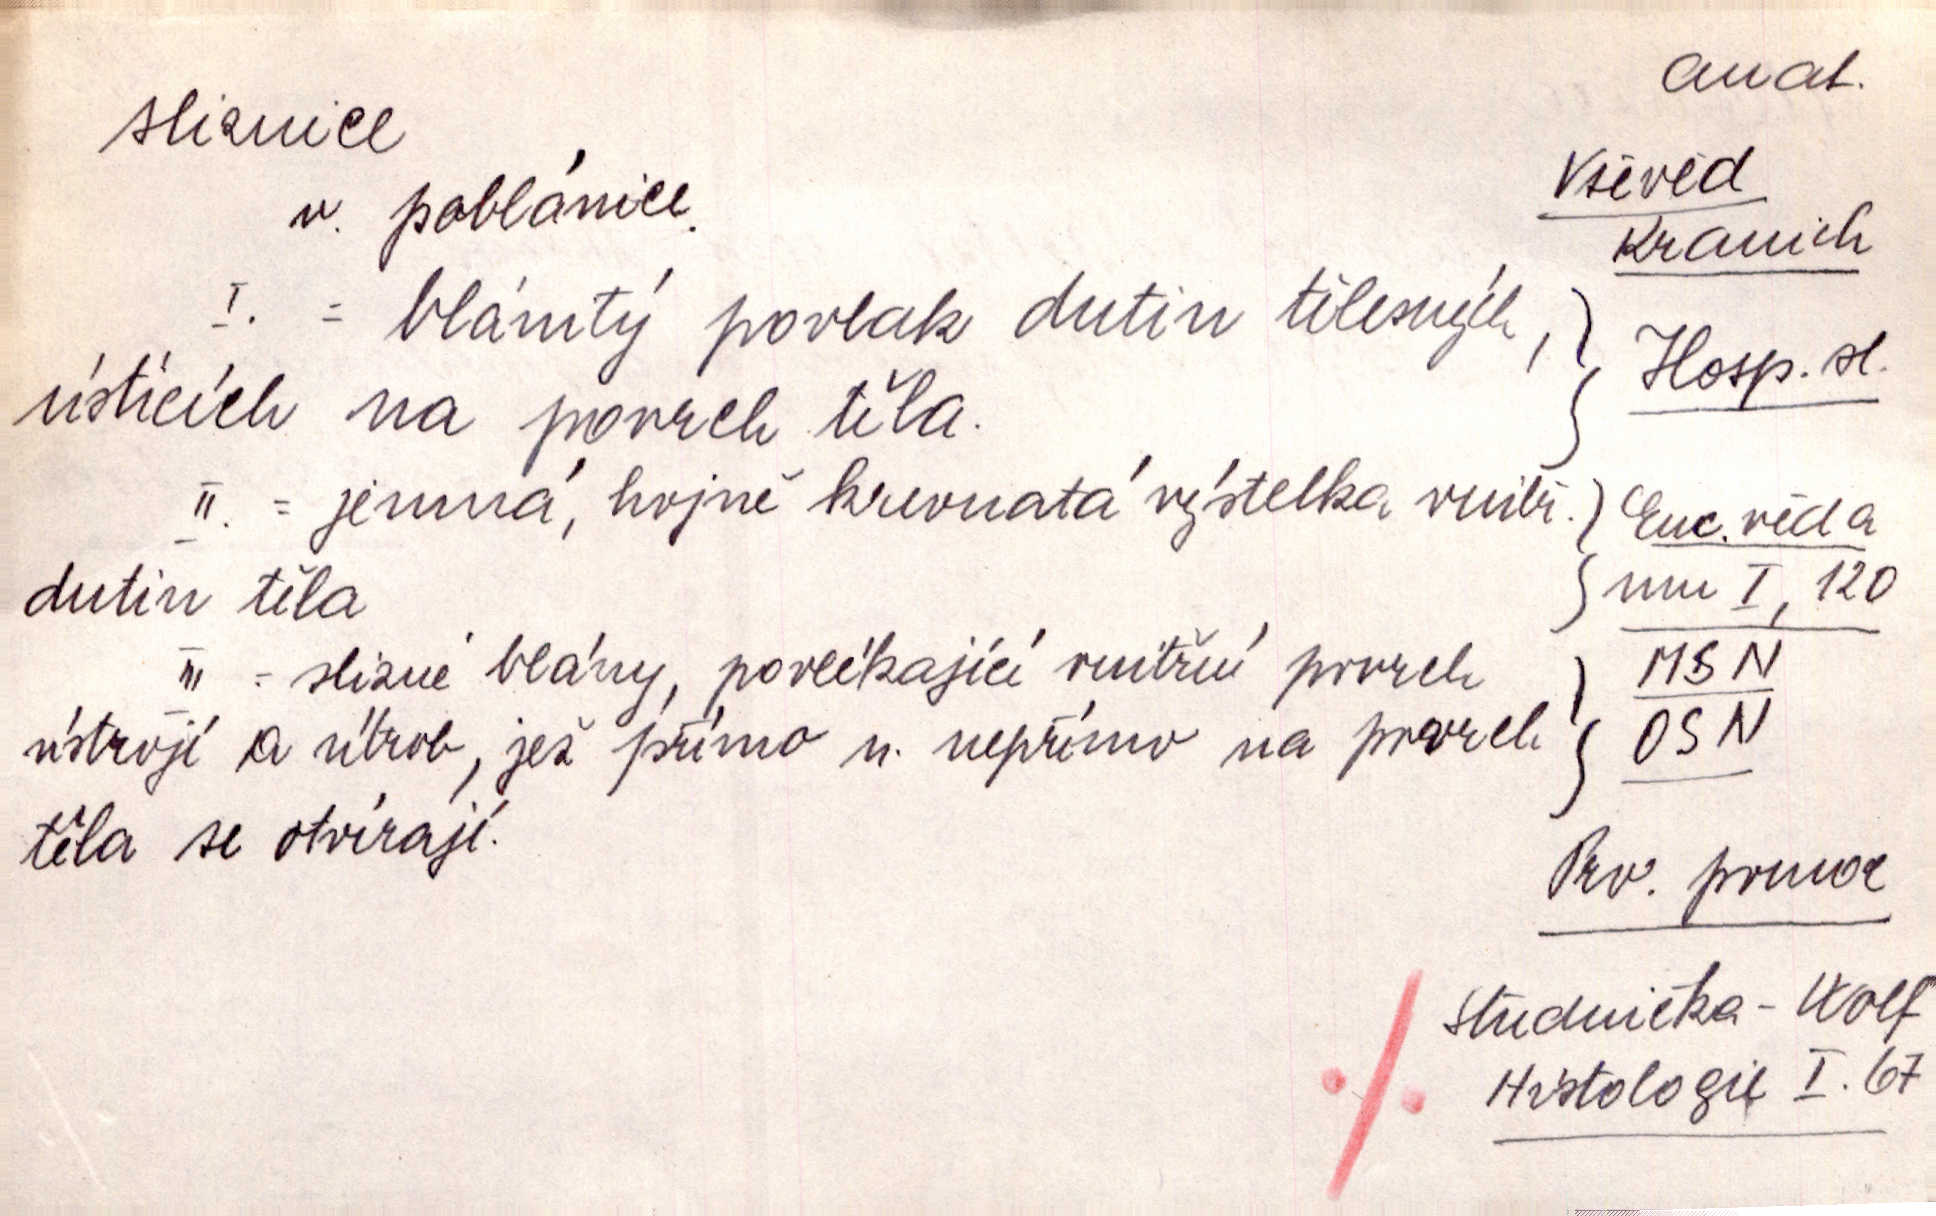 anat.
sliznice
Vševěd
v. poblánice.
Kranich
I. = blánitý povlak dutin tělesných,
Hosp. sl.
ústících na povrch těla.
II. = jemná, hojně krevnatá výstelka vnitř.
Enc. věd a
dutin těla
um I, 120
III = slizné blány, povlékající vnitřní povrch
MSN
ústrojí a útrob, jež přímo n. nepřímo na povrch
OSN
těla se otvírají.
Prv. pomoc
Studnička - Wolf
Histologie I. 67